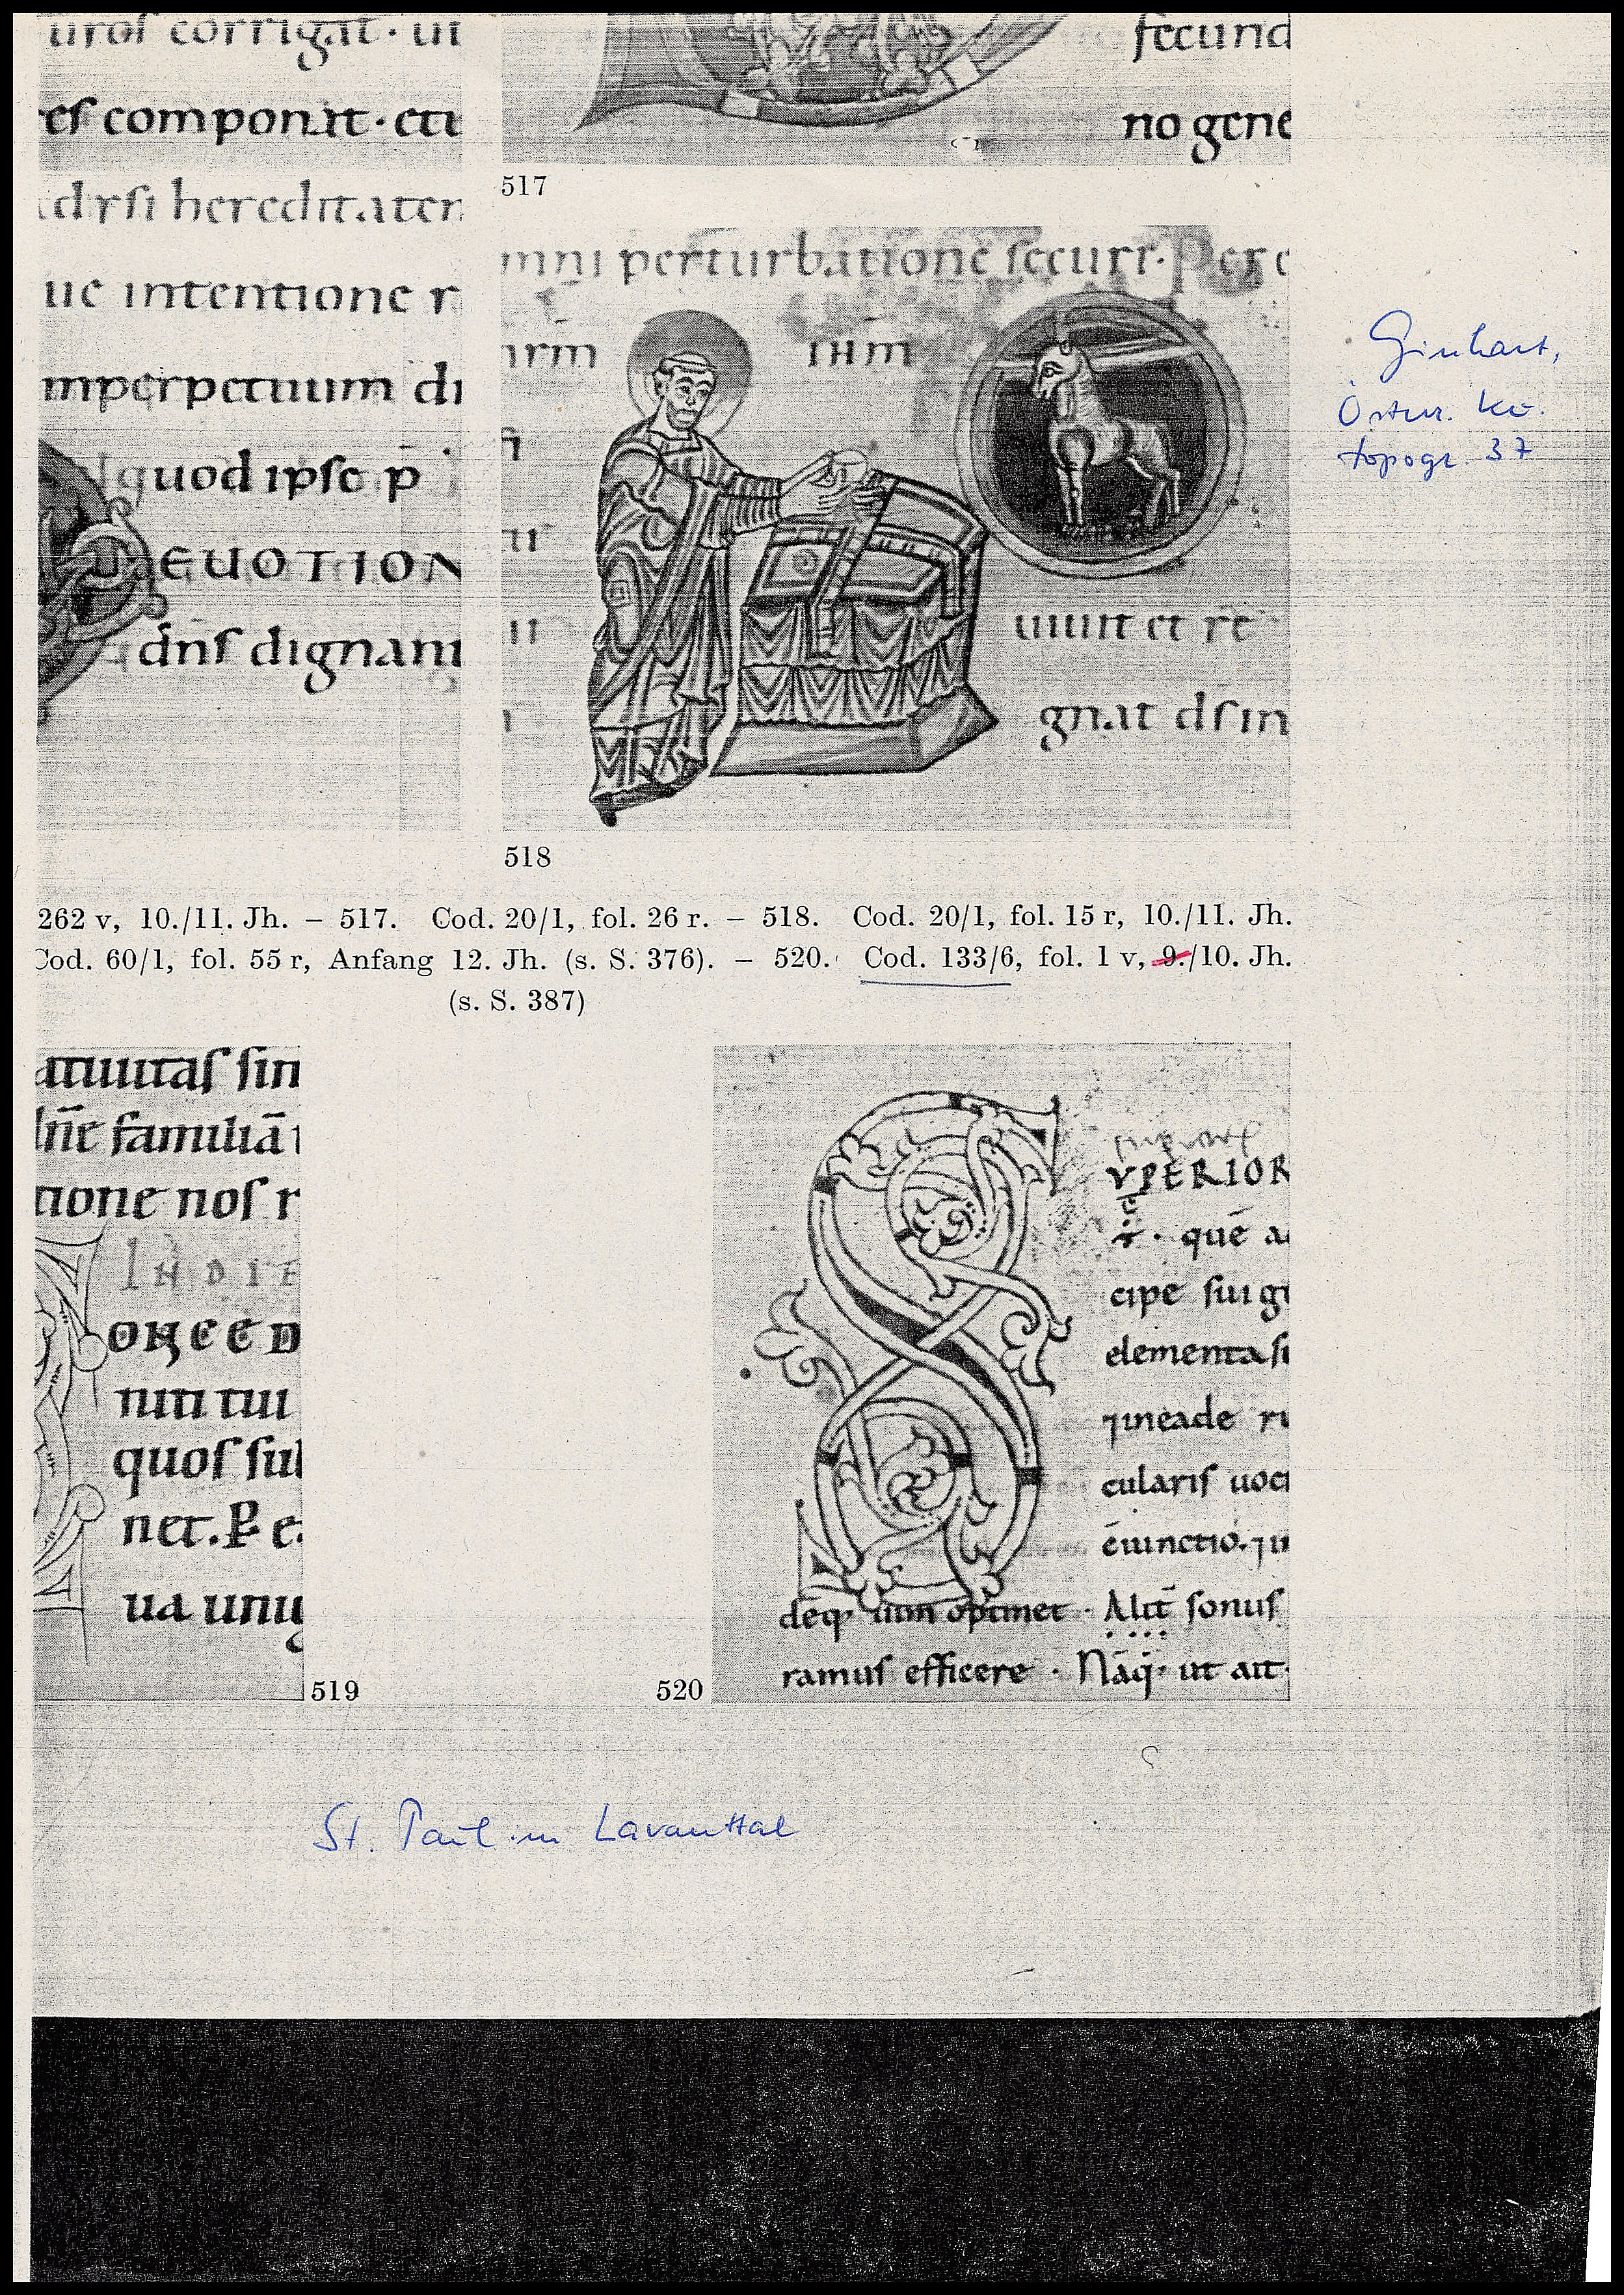 corrigat · ut
componit · eti
hereditatem
ue intentione r
mperpetuum di
quod ipse p̄
DEUOTION
dn̄ſ dignani
secund
no gene
517
mni perturbatione ſecuri · Per e
nrm̄
ihm̄
uiuit et re
gnat dſ in
518
Ginhart,
Österr. Ku.
topogr. 37
262 v, 10./11. Jh. – 517. Cod. 20/1, fol. 26 r. – 518. Cod. 20/1, fol. 15 r, 10./11. Jh.
Cod. 60/1, fol. 55 r, Anfang 12. Jh. (s. S. 376). – 520. Cod. 133/6, fol. 1 v, 9./10. Jh.
(s. S. 387)
atiuitaſ ſin
familiā
tione noſ r
IN DIE
ONCED
niti tui
quoſ ſub
net. P e
ua unig
519
VPERIOR
quē a
cipe ſui g
elementa ſi
⁊ ineade
culariſ uoc
ēiunctio. ⁊ in
optinet · Alit̄ ſonuſ
ramuſ efficere · Nāq; ut ait
520
St. Paul im Lavanttal